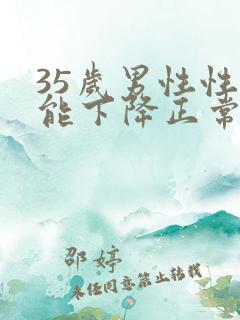 35歲男性性
能下降正常
邵婷
未经同意禁止转载